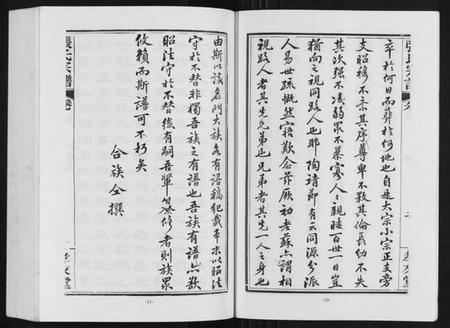 卒於何日而葬於何地也自是大宗小宗正支旁
支昭穆不紊其序尊卑不斁其倫長幼不失
其次強不凌弱眾不暴寡人人親睦百世一日豈
猶向之視同路人也耶陶靖節有云同源分派
人易世疏慨然寤歎念茲厥初老蘇亦謂相
視路人者其先兄弟也兄弟者其先一人之身也
由斯以談名門大族各有譜稿紀載本末以昭法
守於不替非獨吾族之有譜也吾族有譜亦欲
昭法守於不替後有嗣吾輩纂修者則族眾
攸賴而斯譜可不朽矣
合族仝撰
張氏宗譜
卷
孝友堂